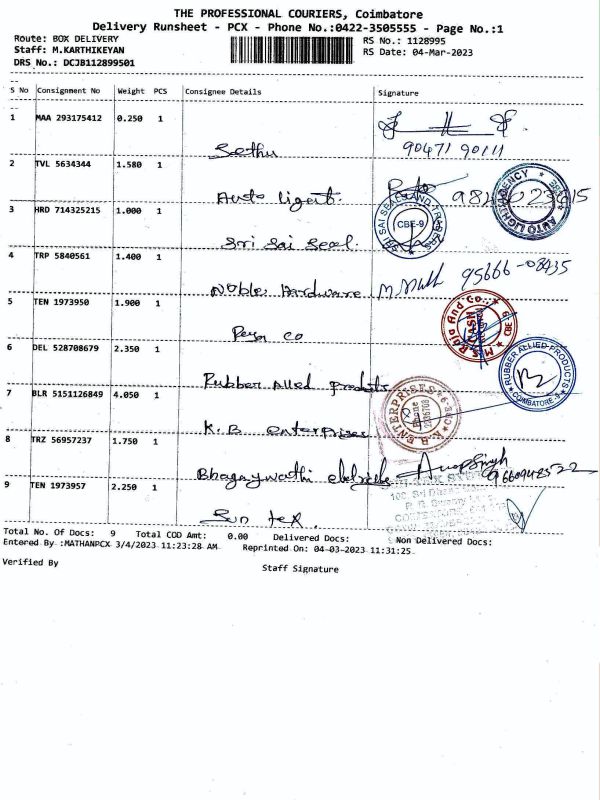 THE PROFESSIONAL COURIERS, Coimbatore
Delivery Runsheet - PCX - Phone No.:0422-3505555 - Page No.:1
Route: BOX DELIVERY RS No.: 1128995
Staff: M.KARTHIKEYAN RS Date: 04-Mar-2023
DRS No.: DCJB112899501
S No Consignment No Weight PCS Consignee Details Signature
1 MAA 293175412 0.250 1
Sethu 90471 90111
2 TVL 5634344 1.580 1
Auto Ligent.
AUTO LIGHT AGENCY
3 HRD 714325215 1.000 1
SRI SAI SEALS AND TRADERS CBE-9
Sri Sai Seal.
4 TRP 5840561 1.400 1
Noble Hardware 95666-08435
5 TEN 1973950 1.900 1
M/s. Raja And Co., CASH CBE 9
6 DEL 528708679 2.350 1
Rubber Allied Products
RUBBER ALLIED PRODUCTS COIMBATORE-9
7 BLR 5151126849 4.050 1
K.B enterprises
ENTERPRISES Phone CBE-9
8 TRZ 56957237 1.750 1
Bhagaywadhi
9 TEN 1973957 2.250 1
Sun tex.
Total No. Of Docs: 9 Total COD Amt: 0.00 Delivered Docs: Non Delivered Docs:
Entered By :MATHANPCX 3/4/2023 11:23:28 AM Reprinted On: 04-03-2023 11:31:25
Verified By
Staff Signature